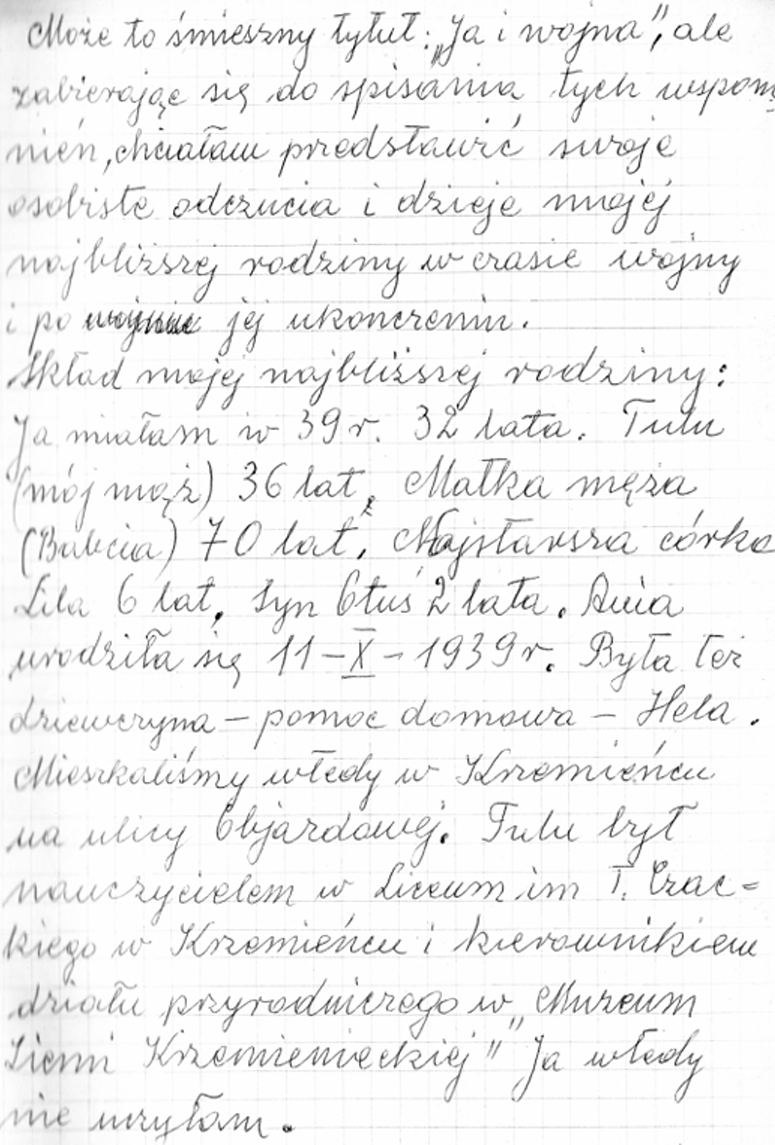 Może to śmieszny tytuł: „Ja i wojna”, ale
zabierając się do spisania tych wspom
nień, chciałam przedstawić swoje
osobiste odczucia i dzieje mojej
najbliższej rodziny w czasie wojny
i po jej ukończeniu.
Skład mojej najbliższej rodziny:
Ja miałam w 39 r. 32 lata. Tulu
(mój mąż) 36 lat, Matka męża
(Babcia) 70 lat, Najstarsza córka
Lila 6 lat, syn Otuś 2 lata. Ania
urodziła się 11-X-1939 r. Była też
dziewczyna - pomoc domowa - Hela.
Mieszkaliśmy wtedy w Krzemieńcu
na ulicy Objazdowej. Tulu był
nauczycielem w Liceum im T. Czac=
kiego w Krzemieńcu i kierownikiem
działu przyrodniczego w „Muzeum
Ziemi Krzemienieckiej” Ja wtedy
nie uczyłam.